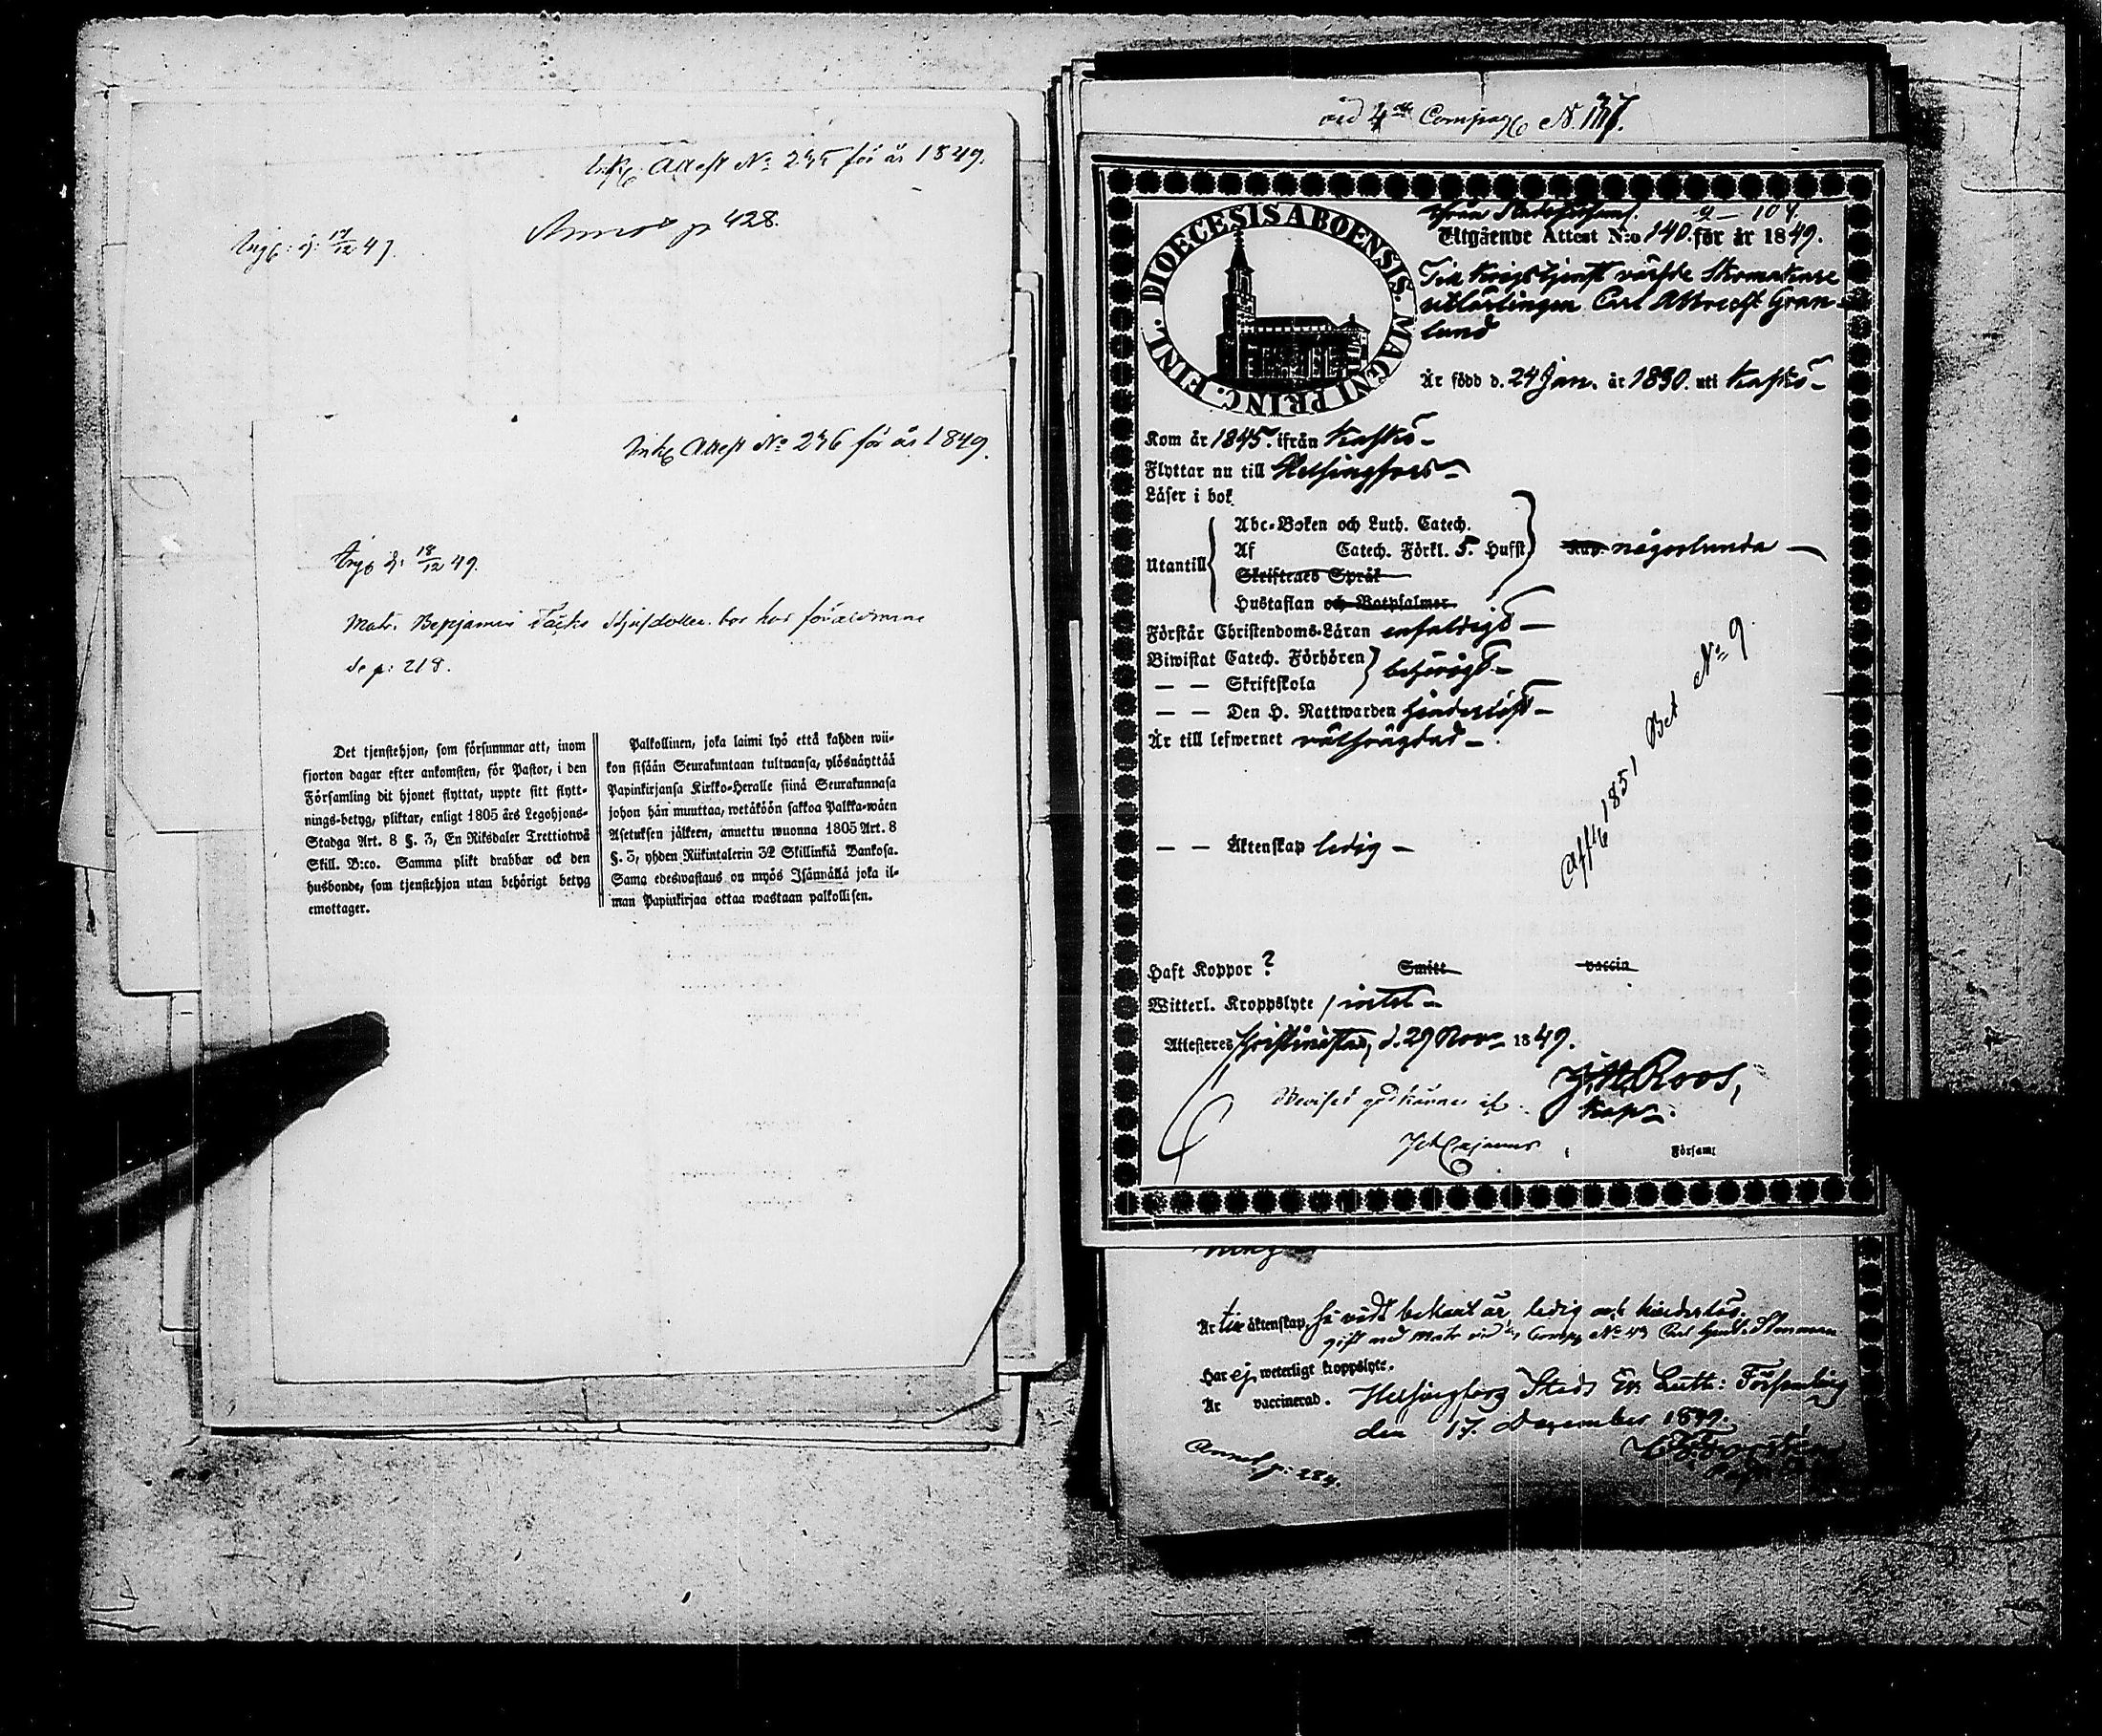 Attest No 235 för år 1849.
p 428.
Ink. Attest No 236 för år 1849.
18/12 49.
Matr. Benjamin bor hos föräldrarne
Se p: 218.
Det tjenstehjon, som försummar att, inom
fjorton dagar efter ankomsten, för Pastor, i den
Församling dit hjonet flyttat, uppte sitt flytt-
nings-betyg, pliktar, enligt 1805 års Legohjons-
Stadga Art. 8 §. 3, En Riksdaler Trettiotwå
Skill. B:co. Samma plikt drabbar ock den
husbonde, som tjenstehjon utan behörigt betyg
emottager.
Palkollinen, joka laimi lyö että kahden wii-
kon sisään Seurakuntaan tultuansa, ylösnäyttää
Papinkirjansa Kirkko-Heralle siinä Seurakunnasa
johon hän muuttaa, wetäköön sakkoa Palkka-wäen
Asetuksen jälkeen, annettu wuonna 1805 Art. 8
§. 3, yhden Riikintalerin 32 Skillinkiä Bankosa.
Sama edeswastaus on myös Isännällä joka il-
man Papinkirjaa ottaa wastaan palkollisen.
vid 4de Compag
DIOECESIS ABOENSIS. MAGNI PRINC. FINL.
Utgående Attest N:o 140. för år 1849.
Till Krigstjenst Skomakare
Carl Albrecht Gran-
lund
Är född d. 24 Jan. år 1830. uti Kaskö
Kom år 1845. ifrån Kaskö
Flyttar nu till Helsingfors
Läser i bok
Utantill
Abc-Boken och Luth. Catech.
Af Catech. Förkl. 5. Hufst. någorlunda
Skriftenes Språk
Hustaflan och Botpsalmer
Förstår Christendoms-Läran enfaldigt
Biwistat Catech. Förhören behörigt
— — Skriftskola
— — Den H. Nattwarden
Är till lefwernet välfrägdad
Afg 1851 Bet No 9
— — Äktenskap ledig
Haft Koppor? Smitt vaccin
Witterl. Kroppslyte intet
Attesteres Christinestad, d. 29 Nov. 1849.
J. N. Roos,
Kapl.
Beviset godkännes af
Joh Cajanus
Församl
Är till äktenskap, så vidt bekant är, ledig och hinderlös.
gift med Matr. vid Comp. No 43 Carl
Har ej weterligt kroppslyte.
Är vaccinerad. Helsingfors Stads Ev. Luth: Församling
den 17. December 1849.
Annot. p: 284.